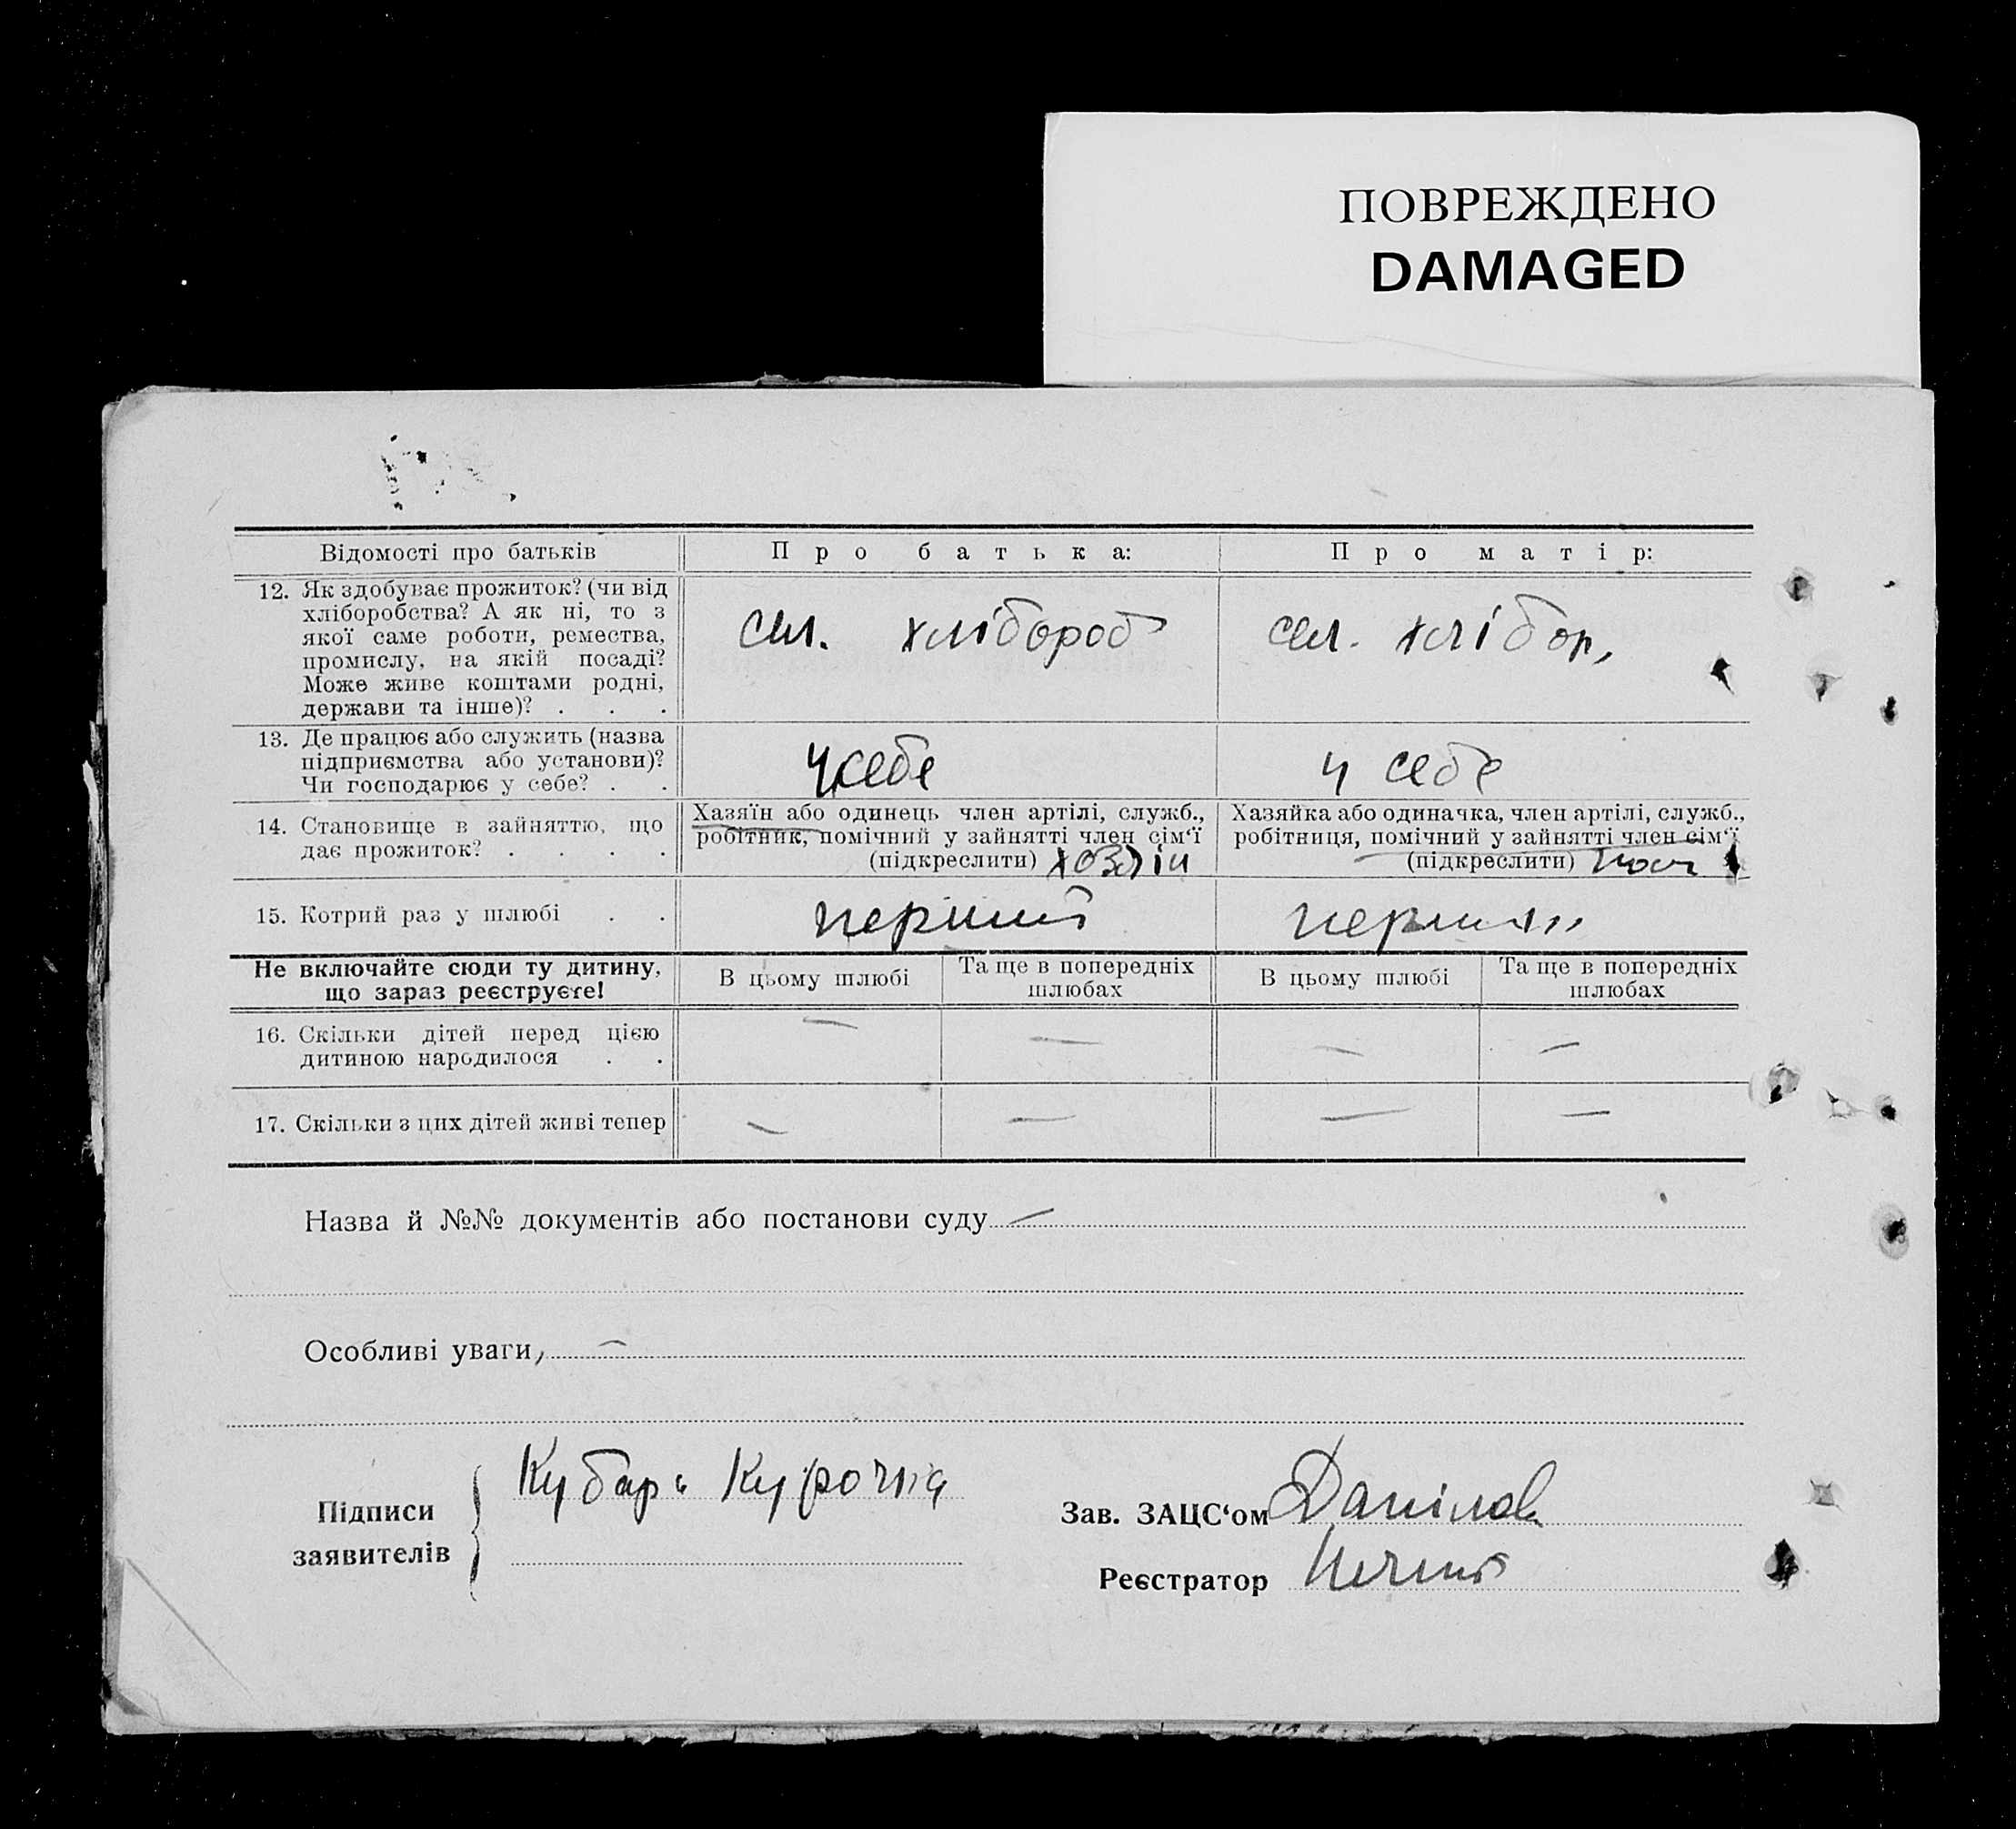 ПОВРЕЖДЕНО
DAMAGED
Відомості про батьків
Про батька:
Про матір:
12. Як здобуває прожиток? (чи від
хліборобства? А як ні, то з
якої саме роботи, ремества,
промислу, на якій посаді?
Може живе коштами родні,
держави та інше)? . . .
сел. хлібороб
сел. хлібор,
13. Де працює або служить (назва
підприємства або установи)?
Чи господарює у себе? . .
у себе
у себе
14. Становище в зайняттю, що
дає прожиток? . . . .
Хазяїн або одинець член артілі, служб.,
робітник, помічний у зайнятті член сім‘ї
(підкреслити) хозяін
Хазяйка або одиначка, член артілі, служб.,
робітниця, помічний у зайнятті член сім‘ї
(підкреслити)
15. Котрий раз у шлюбі . .
перший
Не включайте сюди ту дитину,
що зараз реєструєте!
В цьому шлюбі
Та ще в попередніх
шлюбах
В цьому шлюбі
Та ще в попередніх
шлюбах
16. Скільки дітей перед цією
дитиною народилося . .
— — — —
17. Скільки з цих дітей живі тепер
— — — —
Назва й №№ документів або постанови суду —
Особливі уваги, —
Підписи
заявителів
Кубарь
Зав. ЗАЦС‘ом Данілов
Реєстратор